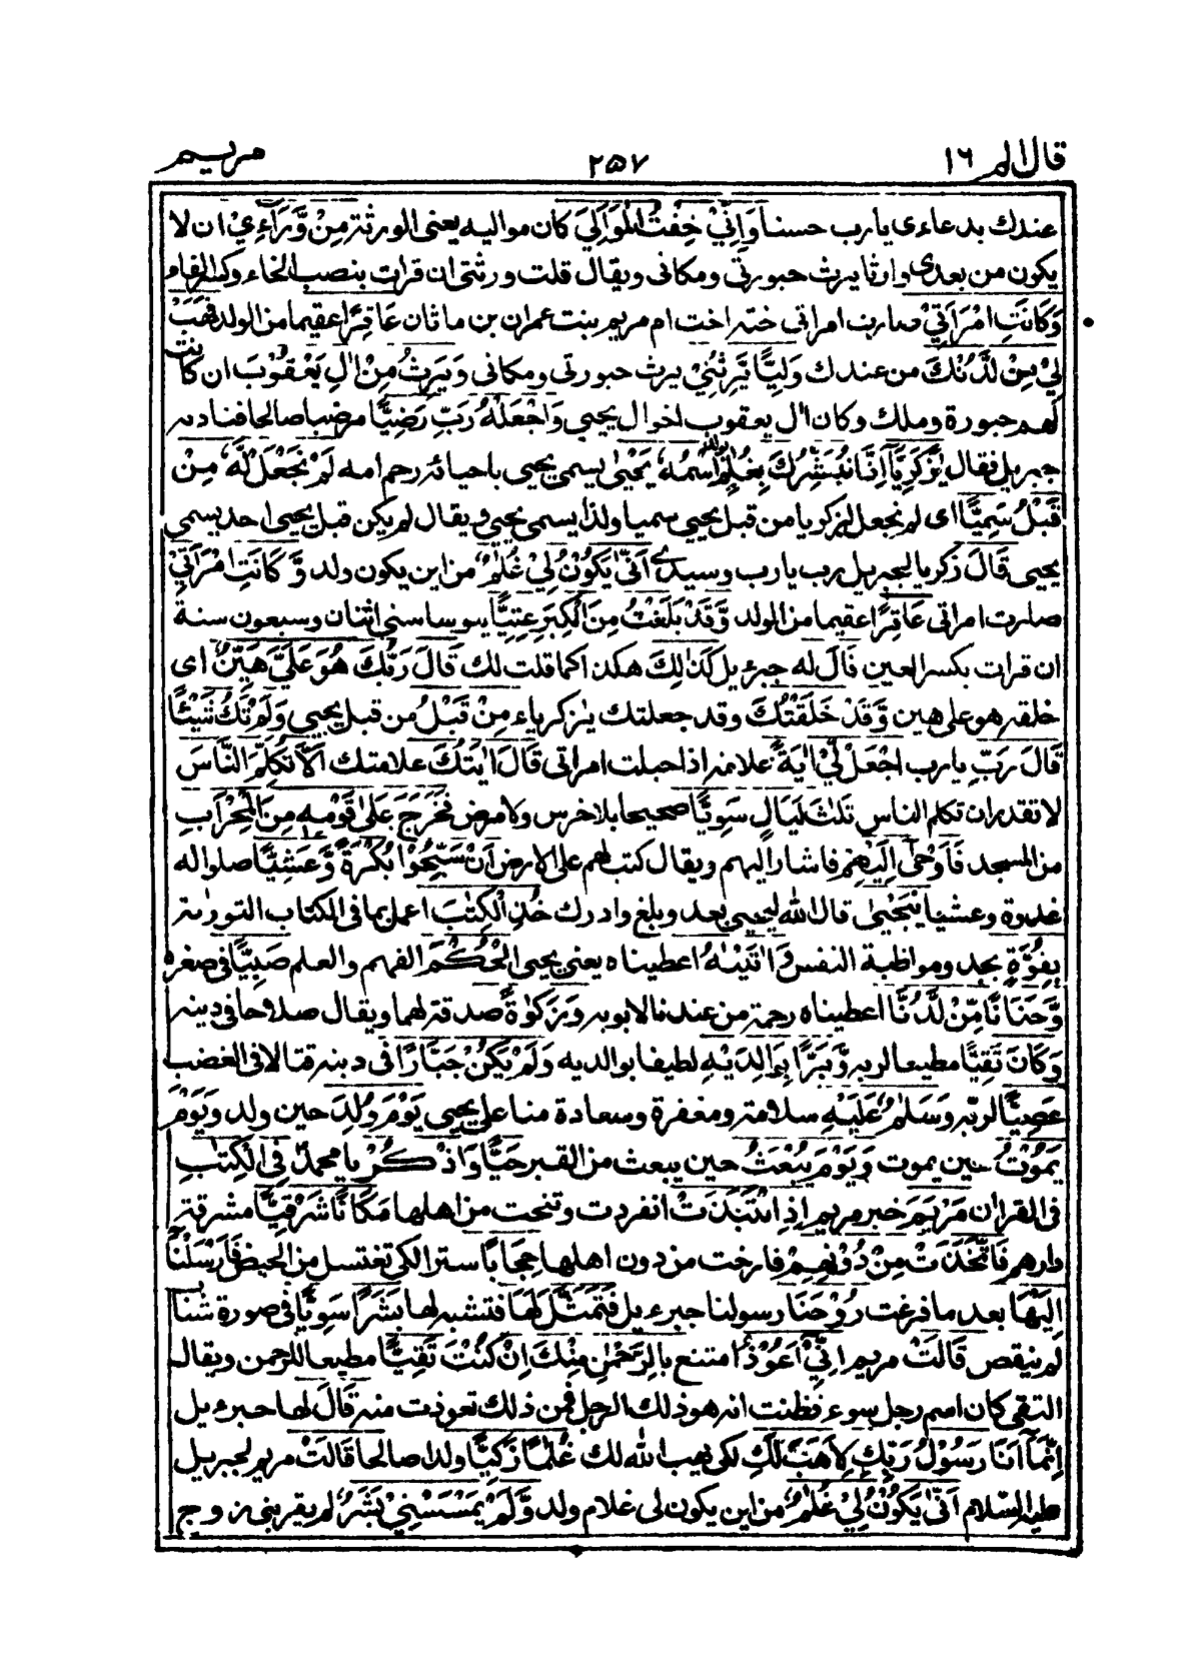 قال الم ١٦ ٢٥٧ مريم
عندك بدعاءى يارب حسنا وَاِنِّىْ خِفْتُ الْمَوَالِىَ كان مواليه يعنى الورثة مِنْ وَّرَآءِىْ ان لا
يكون من بعدى وارثا يرث حبورتى ومكانى ويقال قلت ورثتى ان قرات بنصب الخاء وكسر الفاء
وَكَانَتِ امْرَاَتِىْ صارت امراتى حنة اخت ام مريم بنت عمران بن ماثان عَاقِرًا عقيما من الولد فَهَبْ
لِىْ مِنْ لَّدُنْكَ من عندك وَلِيًّا يَّرِثُنِىْ يرث حبورتى ومكانى وَيَرِثُ مِنْ اٰلِ يَعْقُوْبَ ان كانت
لهم حبورة وملك وكان اٰل يعقوب اخوال يحيى وَاجْعَلْهُ رَبِّ رَضِيًّا مرضيا صالحا فناداه
جبريل فقال يٰزَكَرِيَّآ اِنَّا نُبَشِّرُكَ بِغُلٰمٍ بولد اسْمُهٗ يَحْيٰى يسمى يحيى باحيائه رحم امه لَمْ نَجْعَلْ لَّهٗ مِنْ
قَبْلُ سَمِيًّا اى لم نجعل لزكريا من قبل يحيى سميا ولذا يسمى يحيى ويقال لم يكن قبل يحيى احد يسمى
يحيى قَالَ زكريا لجبريل رب يارب وسيدى اَنّٰى يَكُوْنُ لِىْ غُلٰمٌ من اين يكون ولد وَّكَانَتِ امْرَاَتِىْ
صارت امراتى عَاقِرًا عقيما من الولد وَّقَدْ بَلَغْتُ مِنَ الْكِبَرِ عِتِيًّا يبوسا سنى اثنان وسبعون سنة
ان قرات بكسر العين قَالَ له جبريل كَذٰلِكَ هكذا كما قلت لك قَالَ رَبُّكَ هُوَ عَلَىَّ هَيِّنٌ اى
خلقه هو على هين وَّقَدْ خَلَقْتُكَ وقد جعلتك يا زكرياء مِنْ قَبْلُ من قبل يحيى وَلَمْ تَكُ شَيْئًا
قَالَ رَبِّ يارب اجْعَلْ لِّىْ اٰيَةً علامة اذا حبلت امراتى قَالَ اٰيَتُكَ علامتك اَلَّا تُكَلِّمَ النَّاسَ
لا تقدر ان تكلم الناس ثَلٰثَ لَيَالٍ سَوِيًّا صحيحا بلا خرس ولا مرض فَخَرَجَ عَلٰى قَوْمِهٖ مِنَ الْمِحْرَابِ
من المسجد فَاَوْحٰى اِلَيْهِمْ فاشار اليهم ويقال كتب لهم على الارض اَنْ سَبِّحُوْا بُكْرَةً وَّعَشِيًّا صلوا له
غدوة وعشيا يٰيَحْيٰى قال الله ليحيى بعد وبلغ وادرك خُذِ الْكِتٰبَ اعمل بما فى الكتاب التورٰىة
بِقُوَّةٍ بجد ومواظبة النفس وَاٰتَيْنٰهُ اعطيناه يعنى يحيى الْحُكْمَ الفهم والعلم صَبِيًّا فى صغره
وَّحَنَانًا مِّنْ لَّدُنَّا اعطيناه رحمة من عندنا لابويه وَزَكٰوةً صدقة لهما ويقال صلاحا فى دينه
وَكَانَ تَقِيًّا مطيعا لربه وَّبَرًّا بِوَالِدَيْهِ لطيفا بوالديه وَلَمْ يَكُنْ جَبَّارًا فى دينه قتالا فى الغضب
عَصِيًّا لربه وَسَلٰمٌ عَلَيْهِ سلامة ومغفرة وسعادة منا على يحيى يَوْمَ وُلِدَ حين ولد وَيَوْمَ
يَمُوْتُ حين يموت وَيَوْمَ يُبْعَثُ حين يبعث من القبر حَيًّا وَاذْكُرْ يا محمد فِى الْكِتٰبِ
فى القراٰن مَرْيَمَ خبر مريم اِذِ انْتَبَذَتْ انفردت وتنحت من اهلها مَكَانًا شَرْقِيًّا مشرقة
دارهم فَاتَّخَذَتْ مِنْ دُوْنِهِمْ فارخت من دون اهلها حِجَابًا سترا لكى تغتسل من الحيض فَاَرْسَلْنَا
اِلَيْهَا بعد ما فرغت رُوْحَنَا رسولنا جبرءيل فَتَمَثَّلَ لَهَا فتشبه لها بَشَرًا سَوِيًّا فى صورة شاب
لم ينقص قَالَتْ مريم اِنِّىْ اَعُوْذُ امتنع بِالرَّحْمٰنِ مِنْكَ اِنْ كُنْتَ تَقِيًّا مطيعا للرحمن ويقال
التقى كان اسم رجل سوء فظنت انه هو ذلك الرجل فمن ذلك تعوذت منه قَالَ لها جبرءيل
اِنَّمَآ اَنَا رَسُوْلُ رَبِّكِ لِاَهَبَ لَكِ لكى يهب الله لك غُلٰمًا زَكِيًّا ولدا صالحا قَالَتْ مريم لجبريل
عليه السلام اَنّٰى يَكُوْنُ لِىْ غُلٰمٌ من اين يكون لى غلام ولد وَّلَمْ يَمْسَسْنِىْ بَشَرٌ لم يقربنى زوج